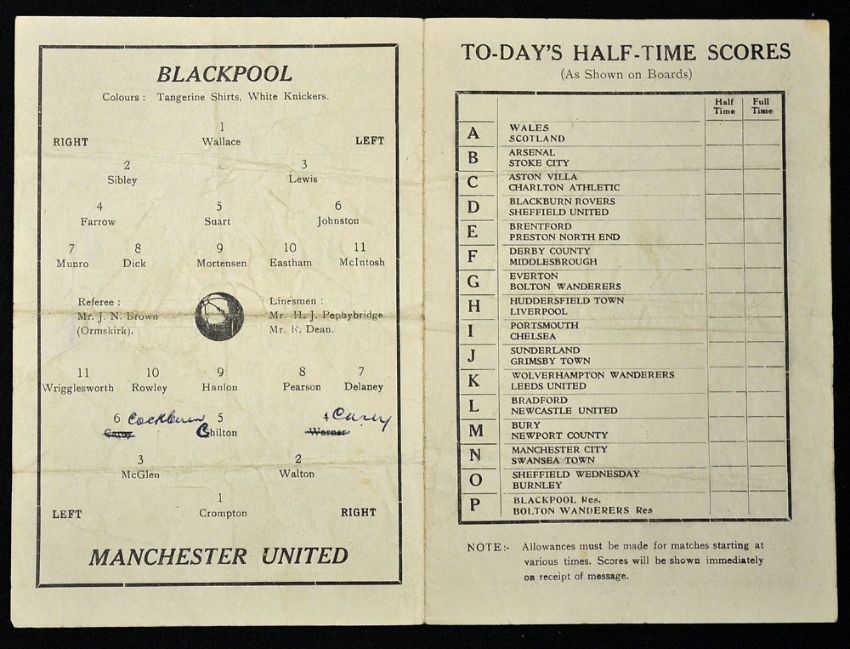 BLACKPOOL
Colours : Tangerine Shirts, White Knickers.
1
RIGHT Wallace LEFT
2 3
Sibley Lewis
4 5 6
Farrow Suart Johnston
7 8 9 10 11
Munro Dick Mortensen Eastham McIntosh
Referee : Linesmen :
Mr. J. N. Brown Mr. H. J. Pephybridge
(Ormskirk). Mr. R. Dean.
11 10 9 8 7
Wrigglesworth Rowley Hanlon Pearson Delaney
6 Cockburn 5 4 Carey
Carey Chilton Warner
3 2
McGlen Walton
1
LEFT Crompton RIGHT
MANCHESTER UNITED
TO-DAY'S HALF-TIME SCORES
(As Shown on Boards)
Half Time Full Time
A WALES
SCOTLAND
B ARSENAL
STOKE CITY
C ASTON VILLA
CHARLTON ATHLETIC
D BLACKBURN ROVERS
SHEFFIELD UNITED
E BRENTFORD
PRESTON NORTH END
F DERBY COUNTY
MIDDLESBROUGH
G EVERTON
BOLTON WANDERERS
H HUDDERSFIELD TOWN
LIVERPOOL
I PORTSMOUTH
CHELSEA
J SUNDERLAND
GRIMSBY TOWN
K WOLVERHAMPTON WANDERERS
LEEDS UNITED
L BRADFORD
NEWCASTLE UNITED
M BURY
NEWPORT COUNTY
N MANCHESTER CITY
SWANSEA TOWN
O SHEFFIELD WEDNESDAY
BURNLEY
P BLACKPOOL Res.
BOLTON WANDERERS Res
NOTE:- Allowances must be made for matches starting at
various times. Scores will be shown immediately
on receipt of message.